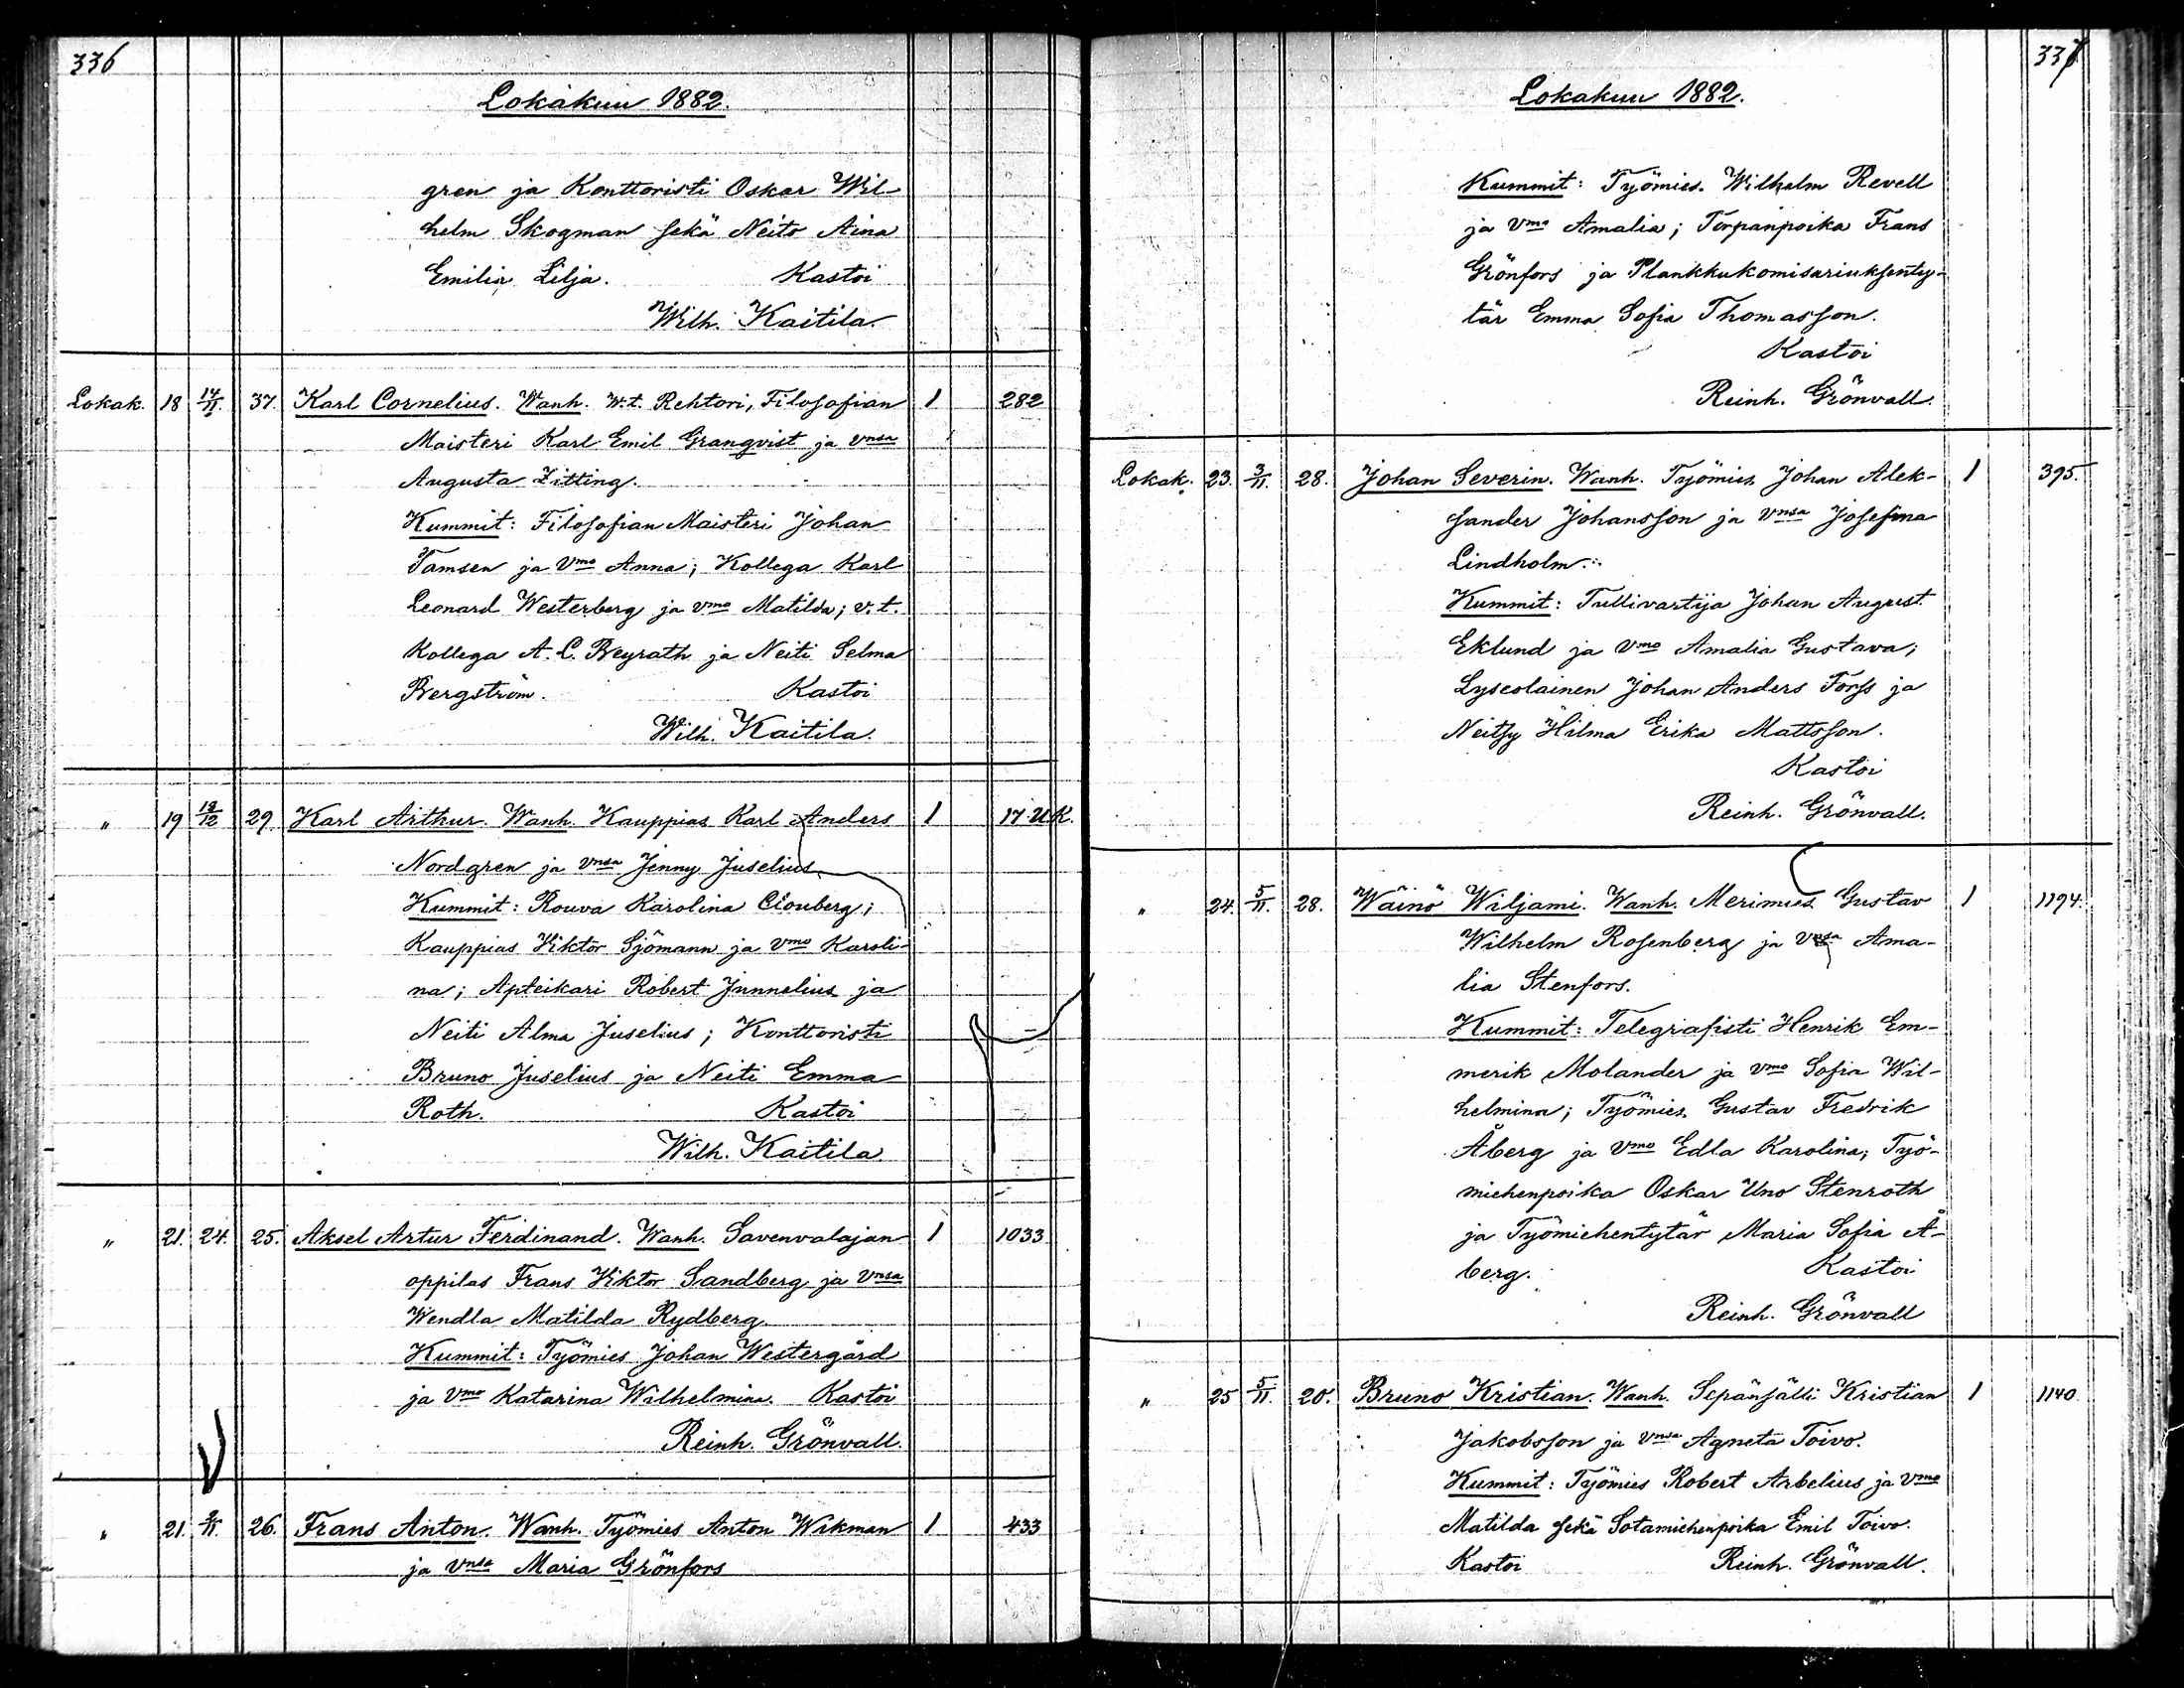 336
Lokakuu 1882.
gren ja Konttoristi Oskar Wil-
helm Skogman sekä Neito Aina
Emilia Lilja. Kastoi
Wilh. Kaitila.
Lokak. 18 14/11. 37. Karl Cornelius. Wanh. W.t. Rehtori, Filosofian 1 282
Maisteri Karl Emil Granqvist ja vnsa
Augusta Zitting.
Kummit: Filosofian Maisteri Johan
Tamsen ja Vmo Anna; Kollega Karl
Leonard Westerberg ja vmo Matilda; v.t.
Kollega A. L. Beyrath ja Neiti Selma
Bergström. Kastoi
Wilh. Kaitila.
" 19 12/12 29 Karl Arthur. Wanh. Kauppias Karl Anders 1 17 UK.
Nordgren ja vnsa Jenny Juselius
Kummit: Rouva Karolina Clouberg;
Kauppias Viktor Sjömann ja vmo Karoli-
na; Apteikari Robert Junnelius ja
Neiti Alma Juselius; Konttoristi
Bruno Juselius ja Neiti Emma
Roth. Kastoi
Wilh. Kaitila.
" 21. 24. 25. Aksel Artur Ferdinand. Wanh. Savenvalajan 1 1033
oppilas Frans Viktor Sandberg ja vnsa
Wendla Matilda Rydberg.
Kummit: Työmies Johan Westergård
ja vmo Katarina Wilhelmina. Kastoi
Reinh. Grönvall.
" 21. 26. Frans Anton. Wanh. Työmies Anton Wikman 1 433
ja vnsa Maria Grönfors
337
Lokakuu 1882.
Kummit: Työmies Wilhelm Revell
ja vmo Amalia; Torpanpoika Frans
Grönfors ja Plankkukomisariuksenty-
tär Emma Sofia Thomasson.
Kastoi
Reinh. Grönvall.
Lokak. 23. 3/11. 28. Johan Severin. Wanh. Työmies Johan Alek- 1 395.
sander Johansson ja vnsa Josefina
Lindholm.
Kummit: Tullivartija Johan August
Eklund ja vmo Amalia Gustava;
Lyseolainen Johan Anders Forss ja
Neitsy Hilma Erika Mattsson.
Kastoi
Reinh. Grönvall.
" 24. 5/11. 28. Wäinö Wiljami. Wanh. Merimies Gustav 1 1194.
Wilhelm Rosenberg ja vnsa Ama-
lia Stenfors.
Kummit: Telegrafisti Henrik Em-
merik Molander ja vmo Sofia Wil-
helmina; Työmies Gustav Fredrik
Åberg ja vmo Edla Karolina; Työ-
miehenpoika Oskar Uno Stenroth
ja Työmiehentytär Maria Sofia Å-
berg. Kastoi
Reinh. Grönvall
" 25 5/11. 20. Bruno Kristian. Wanh. Sepänsälli Kristian 1 1140.
Jakobsson ja vnsa Agneta Toivo.
Kummit: Työmies Robert Arbelius ja vmo
Matilda sekä Sotamiehenpoika Emil Toivo.
Kastoi Reinh. Grönvall.